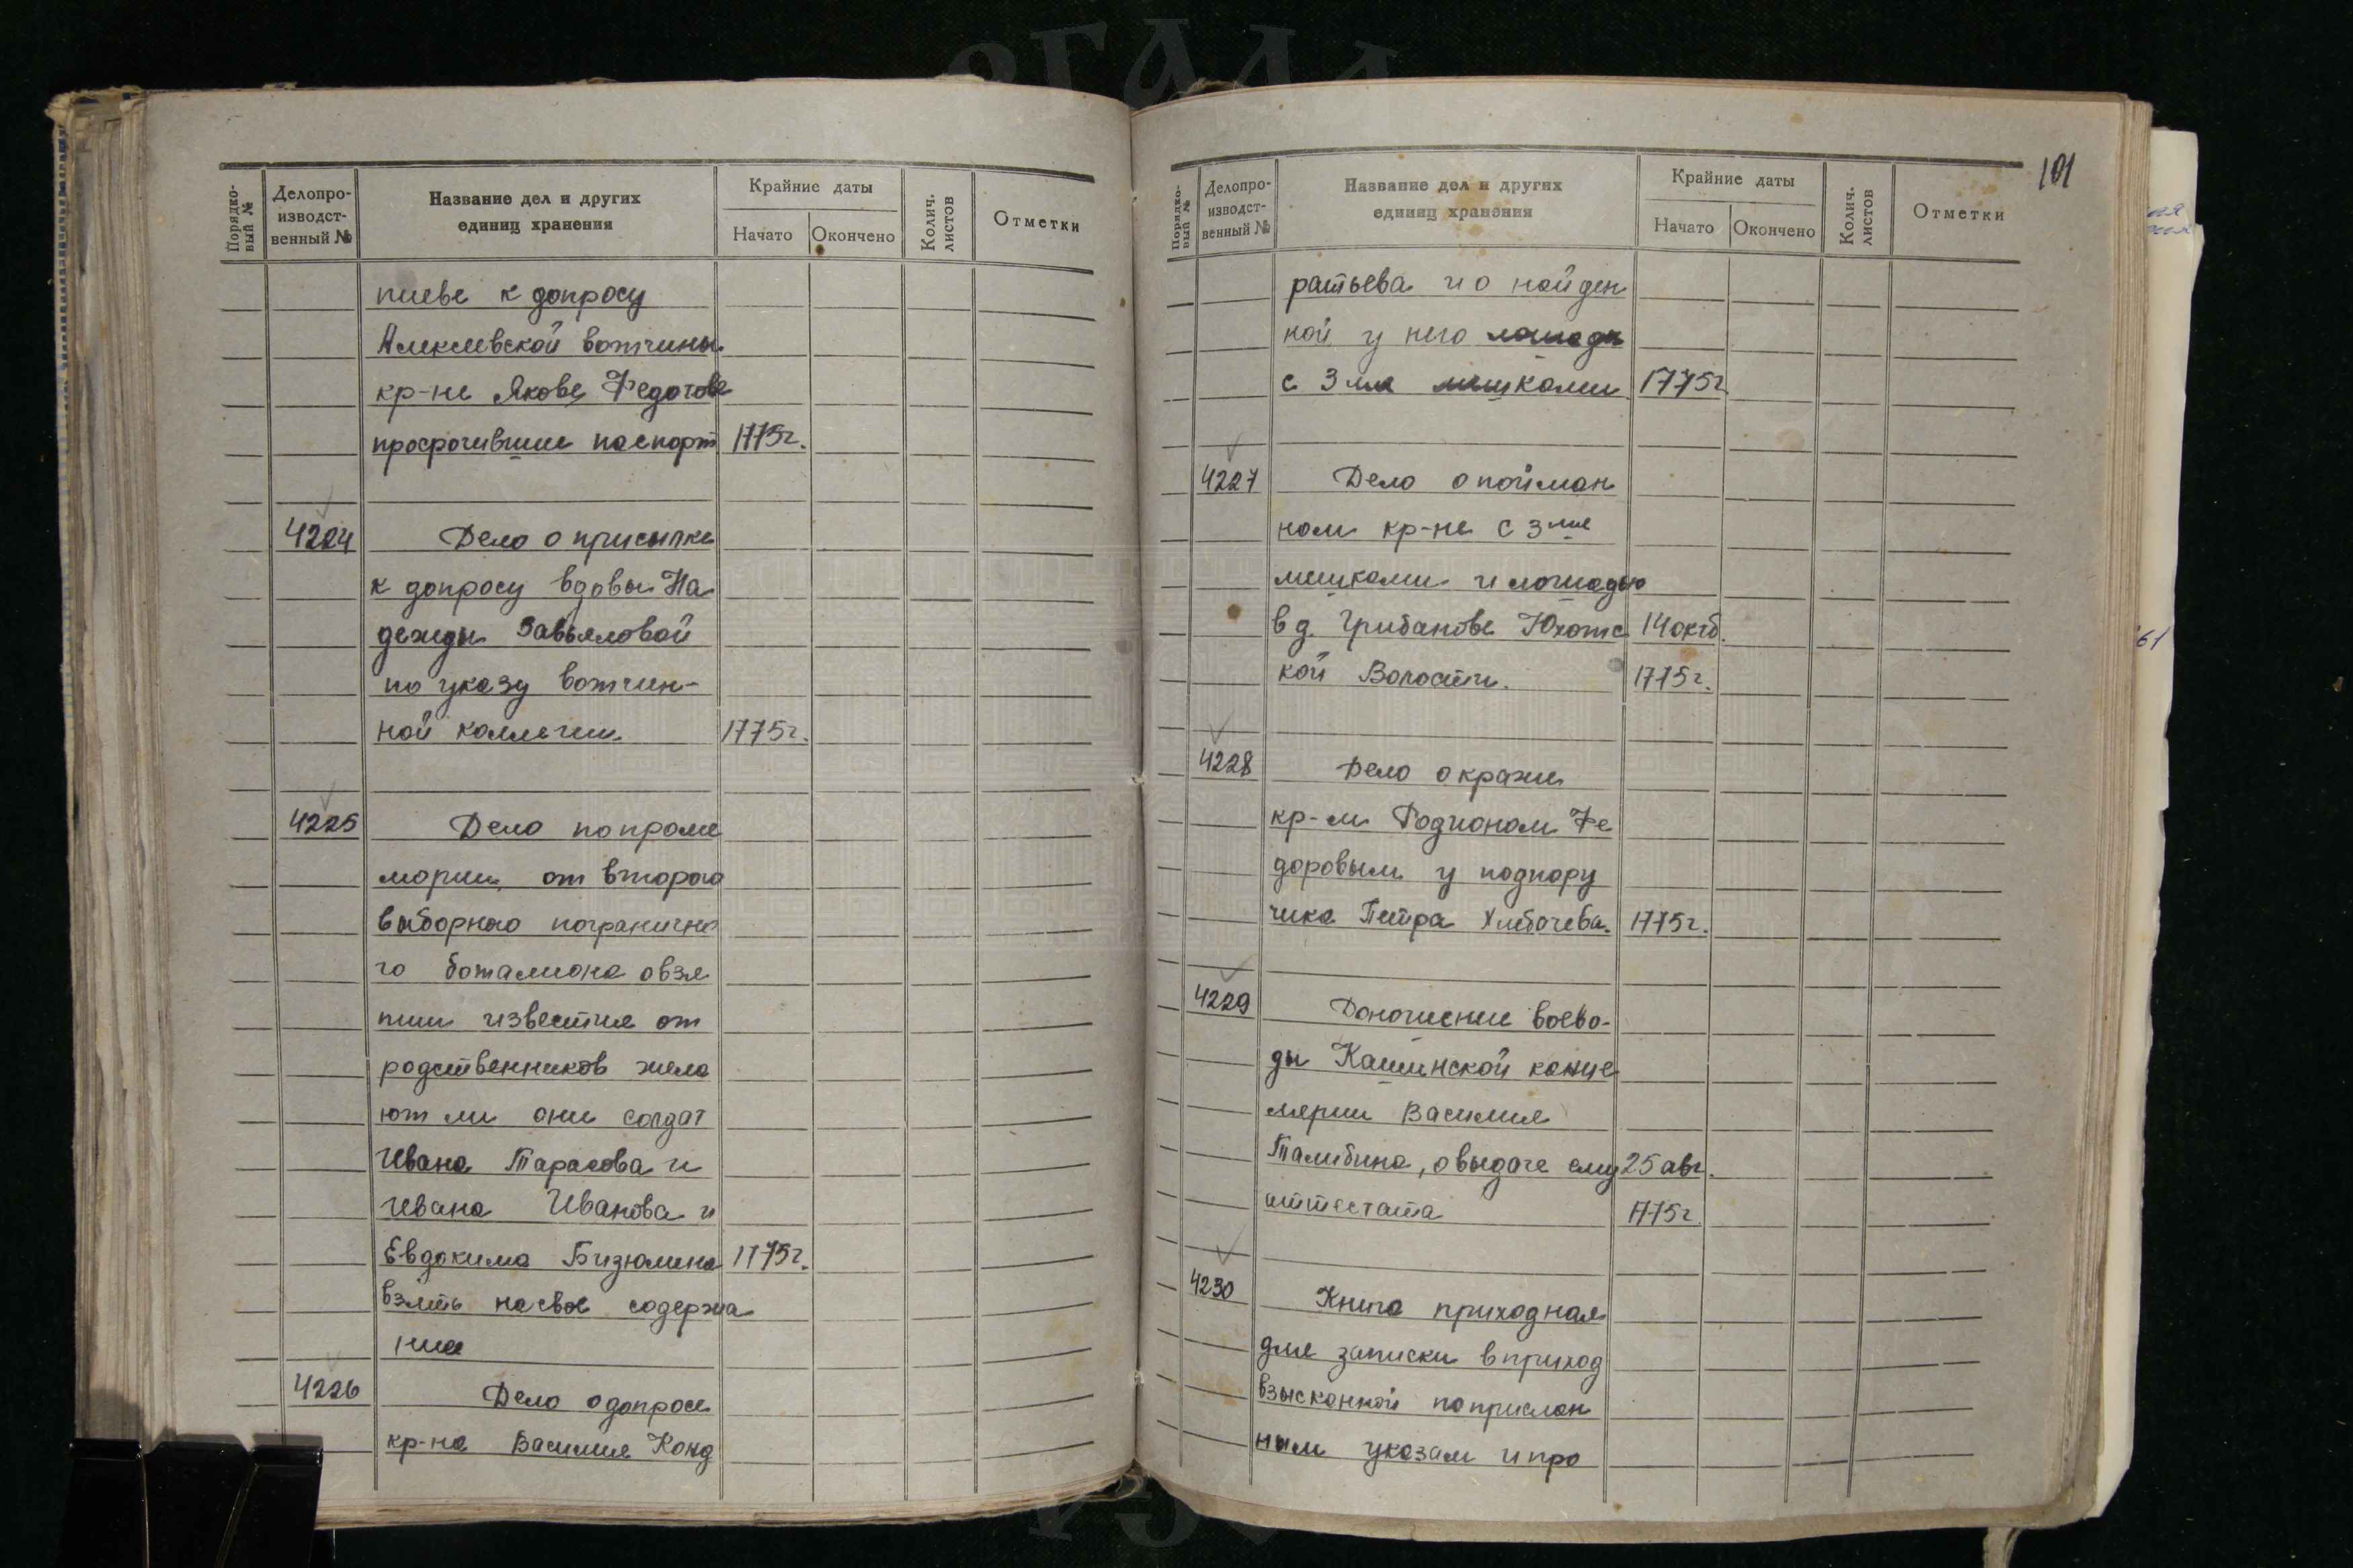 Порядко-
вый №
Делопро-
изводст-
венный №
Название дел и других
единиц хранения
Крайние даты
Начато
Окончено
Колич.
листов
Отметки
пиеве к допросу
Алексеевской вотчины
кр-не Якове Федотове
просрочившие паспорт 1775г.
4224 Дело о присылке
к допросу вдовы На
дежды Завьяловой
по указу вотчин-
ной коллегии 1775г.
4225 Дело по проме
мории от второго
выборного погранично
го баталиона о взя
тии известия от
родственников жела
ют ли они солдат
Ивана Тарасова и
Ивана Иванова и
Евдокима Бизюлина 1775г.
взять на свое содержа
ние
4226 Дело о допросе
кр-на Василия Конд
101
Порядко-
вый №
Делопро-
изводст-
венный №
Название дел и других
единиц хранения
Крайние даты
Начато
Окончено
Колич.
листов
Отметки
ратьева и о найден
ной у него лошади
с 3мя мешками 1775г.
4227 Дело о пойман
ном кр-не с 3мя
мешками и лошадью
в д. Грибанове Юхотс 14 октб.
кой Волости. 1775г.
4228 Дело о кражи
кр-м Родионом Фе
доровым у подпору
чика Петра Хлебочева. 1775г.
4229 Доношение воево-
ды Кашинской канце
лярии Василия
Талибина, о выдаче ему 25 авг.
аттестата 1775г.
4230 Книга приходная
для записки в приход
взысканной по прислан
ным указам и про
61